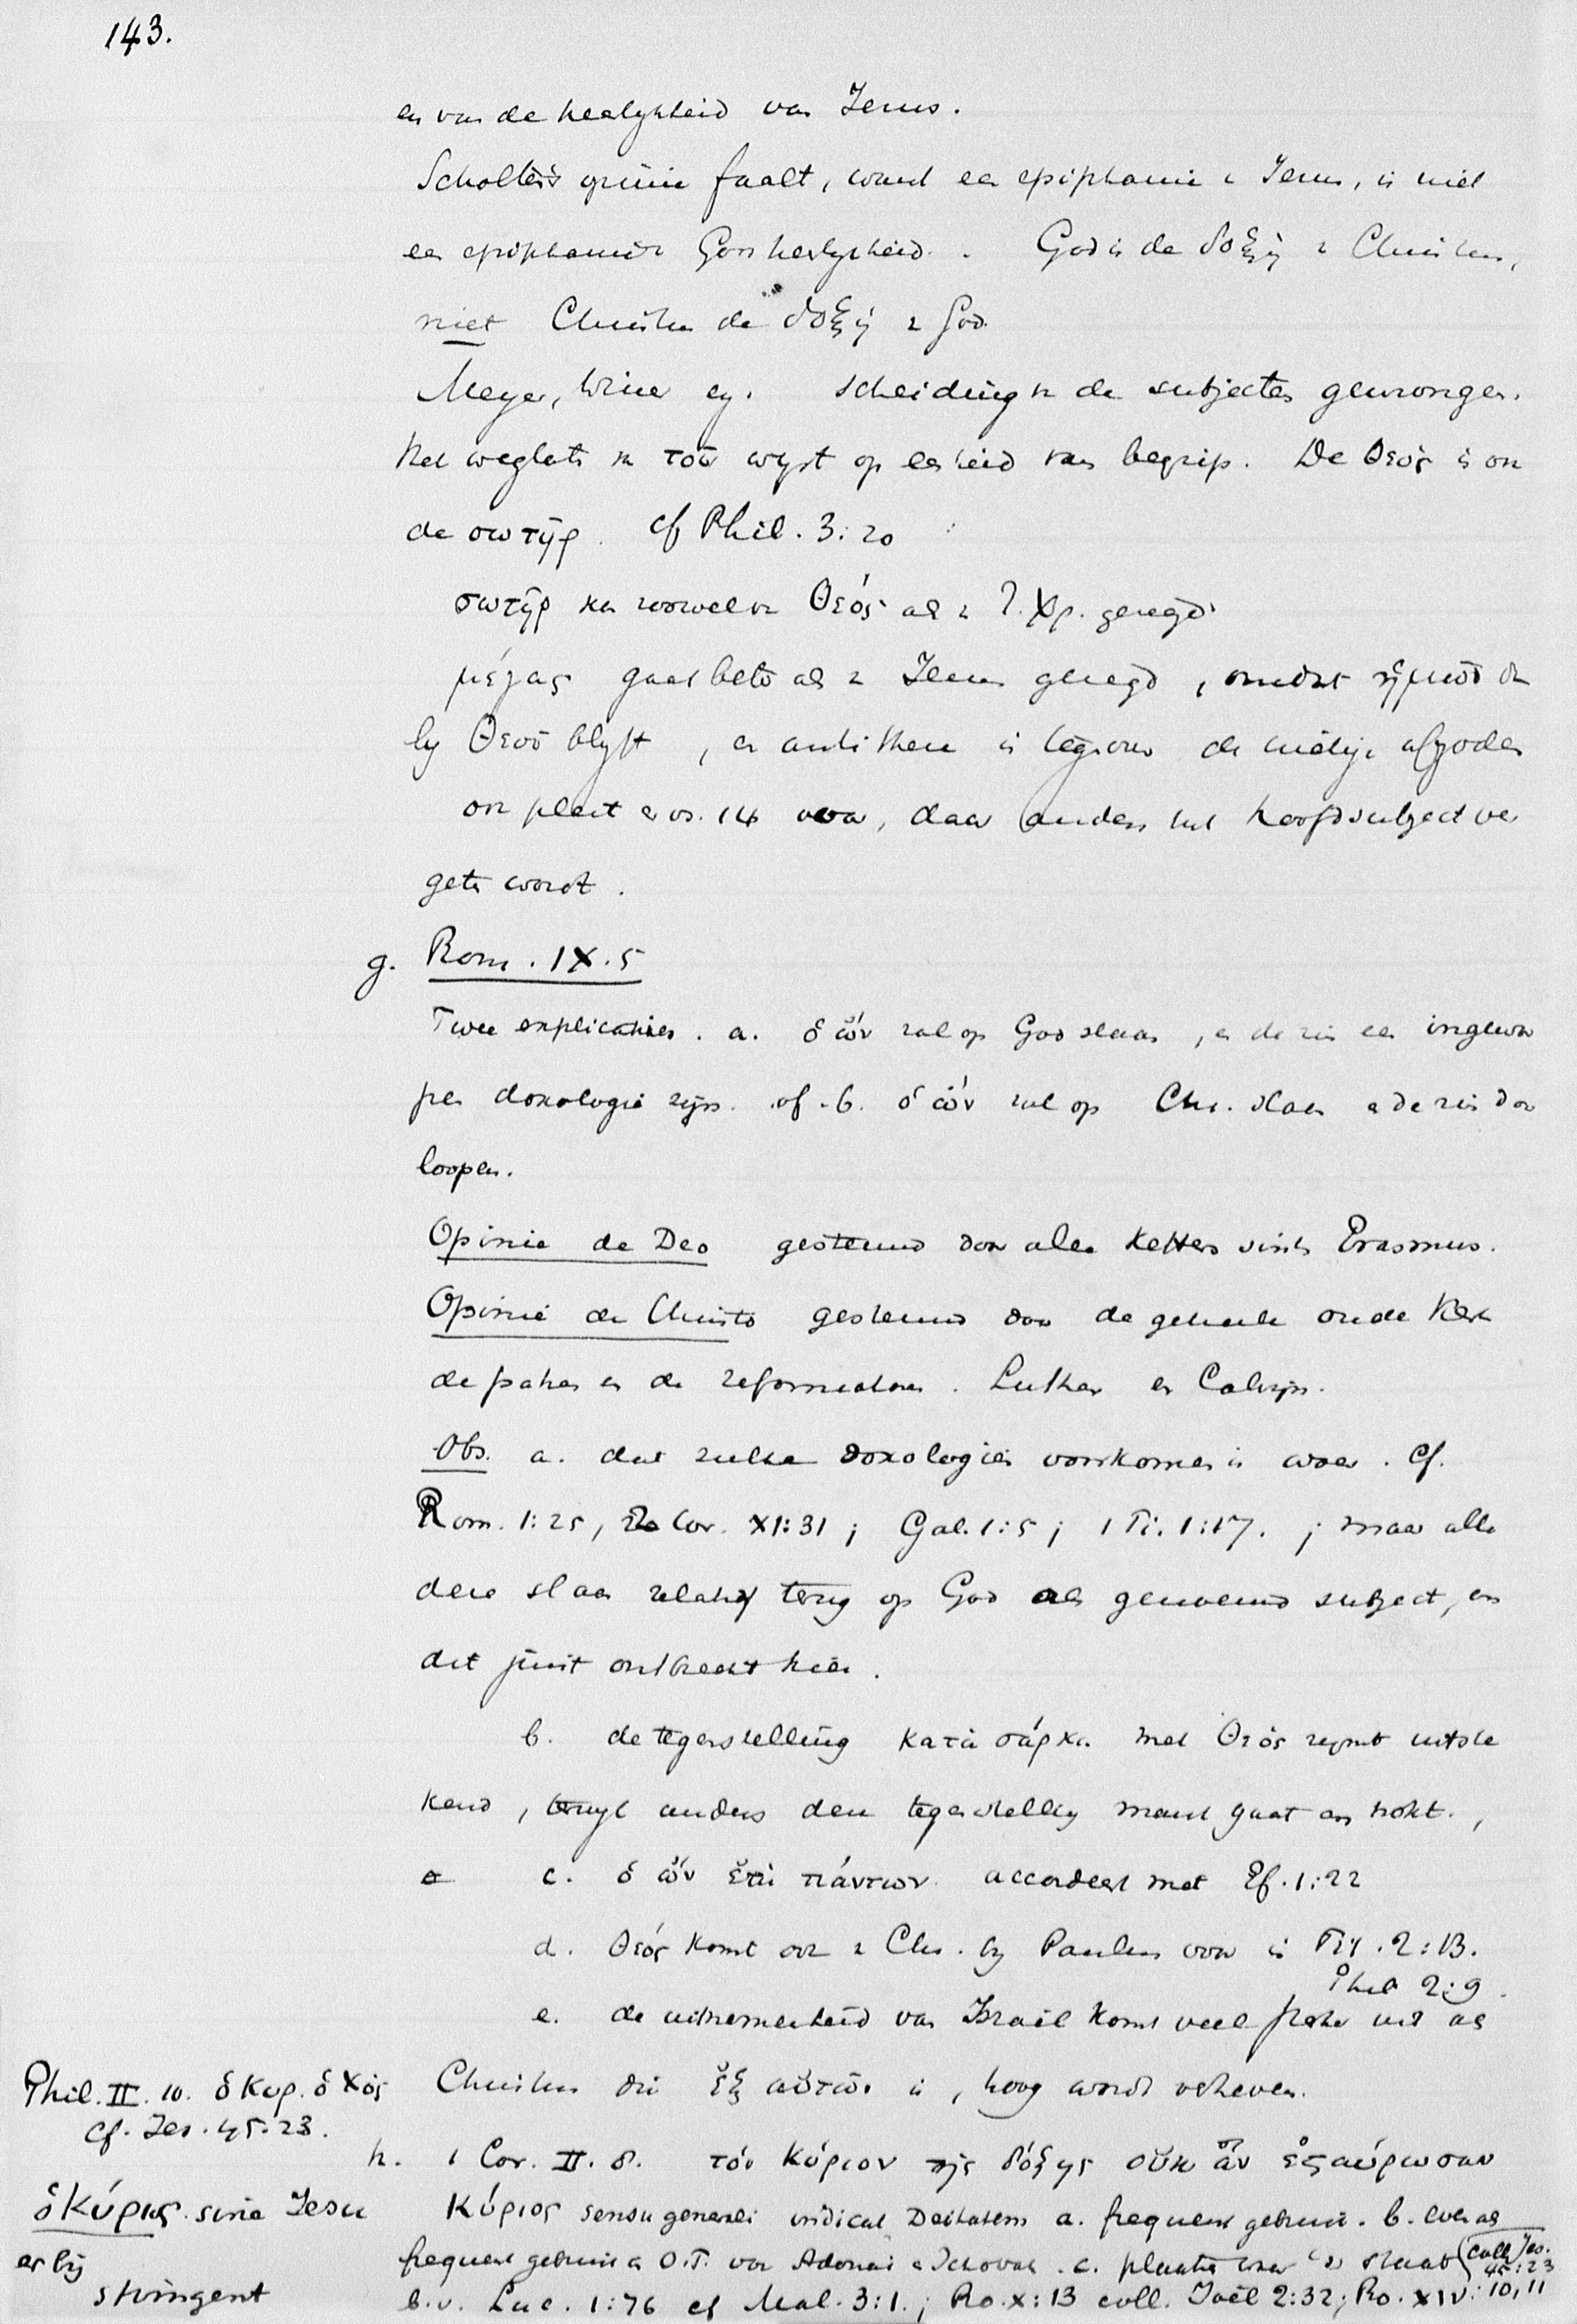 143.
en van de heerlykheid van Jezus.
Scholten's opinie faalt, want een epiphanie v Jezus, is niet
een epiphanie v Gods heerlykheid. God is de δοξη v Christus,
niet Christus de δοξη v God.
Meyer, Winer eg. scheiding v de subjecten gewrongen.
Het weglaten v τοῦ wyst op eenheid van begrip. De Θεός is ook
de σωτήρ. cf Phil. 3:20
σωτήρ kan zoowel v Θεός als v J. Χρ. gezegd
μέγας gaat beter als v Jezus gezegd, omdat ἡμῶν dan
by Θεοῦ blyft, en antithese is tegenover de nietige afgoden
ook pleit er vs. 14 voor, daar anders het hoofdsubject ver
geten wordt.
g. Rom. IX. 5
Twee explicaties. a. ὁ ὤν zal op God slaan, en de zin een ingewor
pen doxologie zijn. of b. ὁ ὤν zal op Chr. slaan en de zin door
loopen.
Opinie de Deo gesteund door alle Ketters sinds Erasmus.
Opinie de Christo gesteund door de geheele oude Kerk
de patres en de reformatoren. Luther en Calvijn.
Obs. a. dat zulke doxologiën voorkomen is waar. Cf.
Rom. 1:25, 2 Cor. XI:31; Gal. 1:5; 1 Ti. 1:17.; maar alle
deze slaan relatief terug op God als genoemd subject, en
dit juist ontbreekt hier.
b. de tegenstelling κατὰ σάρκα met Θεός rymt uitste
kend, terwyl anders den tegenstelling mank gaat en hokt.,
c. ὁ ὤν ἐπὶ πάντων accordeert met Ef. 1:22
d. Θεός komt ook v Chr. by Paulus voor in Tit. 2:13.
Phil 2:9.
e. de uitnemendheid van Israël komt veel sterker uit als
Christus die ἐξ αὐτῶν is, hoog wordt verheven.
Phil. II. 10. ὁ Κυρ. ὁ Χὸς
cf. Jes. 45:23.
h. 1 Cor. II. 8. τὸν Κύριον τῆς δόξης οὐκ ἂν ἐσταύρωσαν
ὁ Κύριος sine Jesu
er bij
stringent
Κύριος sensu generali indicat Deitatem a. frequent gebruik. b. even als
frequent gebruik in O.T. voor Adonai en Jehovah. c. plaatsen waar 't zo staat (coll. Jes. 45:23
b.v. Luc. 1:76 cf Mal. 3:1.; Ro. X:13 coll. Joël 2:32; Ro. XIV:10,11